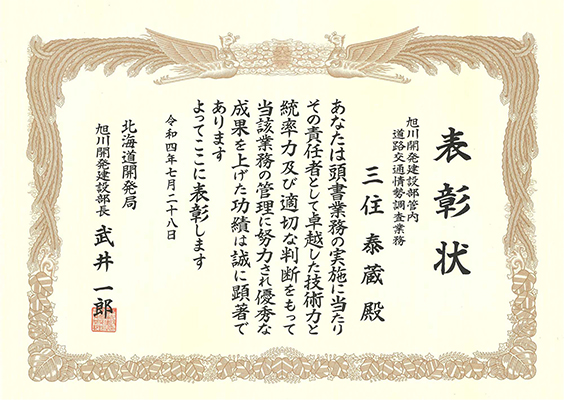 表彰状
旭川開発建設部管内
道路交通情勢調査業務
三住 泰蔵 殿
あなたは頭書業務の実施に当たり
その責任者として卓越した技術力と
統率力及び適切な判断をもって
当該業務の管理に努力され優秀な
成果を上げた功績は誠に顕著で
あります
よってここに表彰します
令和四年七月二十八日
北海道開発局
旭川開発建設部長 武井 一郎